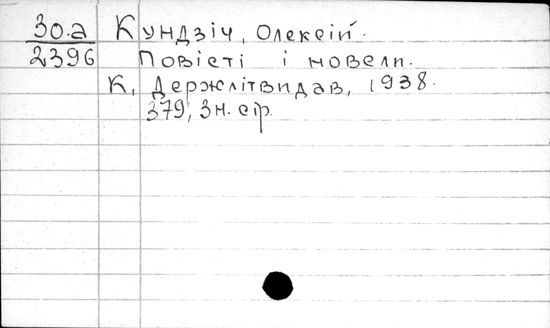 30.а Кундзіч, Олексій.
2396 Повісті і новели.
К, Держлітвидав, 1938.
379, 3н. стр.